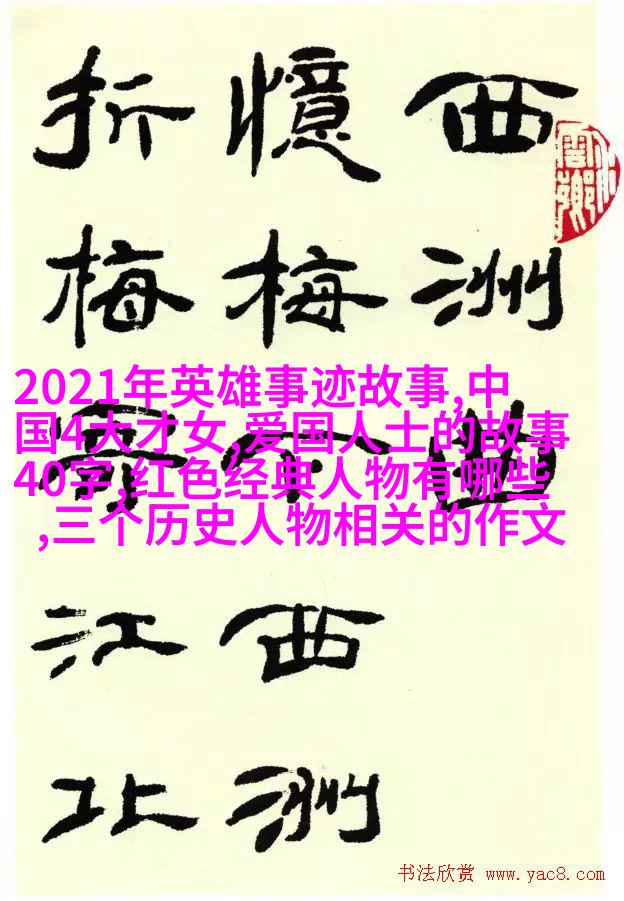 西洲曲
憶梅下西洲
折梅寄江北
2021年英雄事迹故事,中
国4大才女,爱国人士的故事
40字,红色经典人物有哪些
,三个历史人物相关的作文
书法欣赏 www.yac8.com